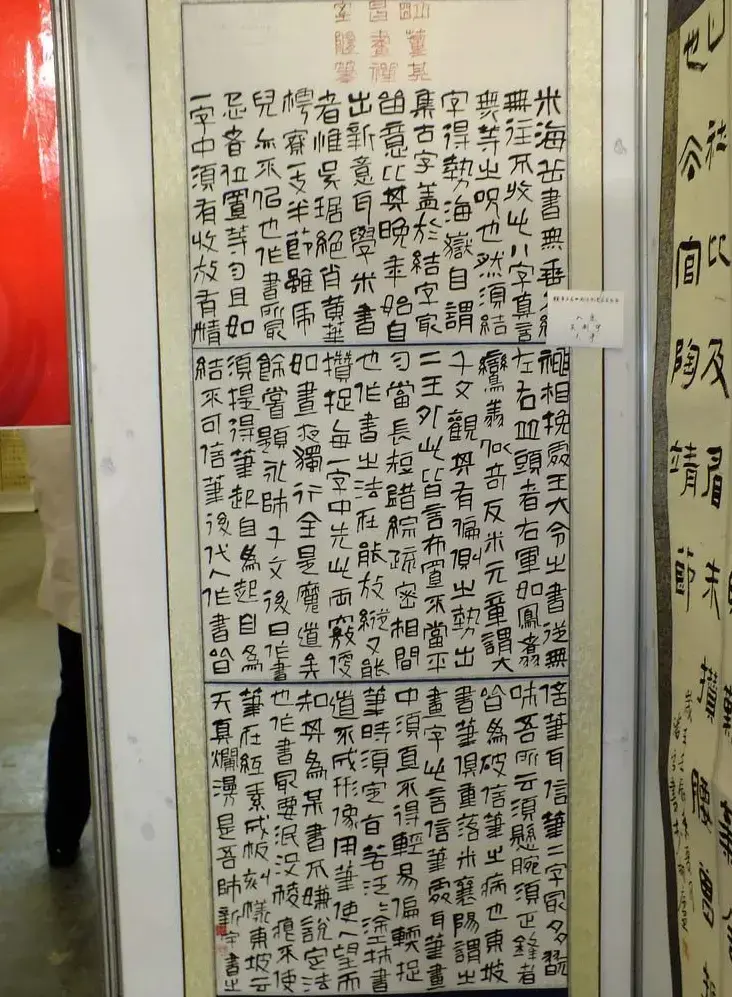 明董其
昌畫禪
室隨筆
米海岳書無垂不縮
無往不收此八字真言
無等之呪也然須結
字得勢海嶽自謂
集古字蓋於結字最
留意比其晚年始自
出新意耳學米書
者惟吳琚絕肖黃華
樗寮一支半節雖虎
兒亦不佀也作書所最
忌者位置等勻且如
一字中須有收放有精
神相挽處王大令之書從無
左右並頭者右軍如鳳翥
鸞翥似奇反米元章謂大
千文觀其有偏側之勢出
二王外此皆言布置不當平
勻當長短錯綜疏密相間
也作書之法在能放縱又能
攢捉每一字中失此兩竅便
如晝夜獨行全是魔道矣
餘嘗題永師千文後曰作書
須提得筆起自為起自為
結不可信筆後代人作書皆
信筆耳信筆二字最多玩
味吾所云須懸腕須正鋒者
皆為破信筆之病也東坡
書筆俱重落米襄陽謂之
畫字此言信筆處耳筆畫
中須直不得輕易偏軟捉
筆時須定旨若泛泛塗抹書
道不成形像用筆使人望而
知其為某書不嫌說定法
也作書最要泯沒棱痕不使
筆在紙素成板刻樣東坡云
天真爛漫是吾師 新宇書之
社比及眉未
也今官陶靖節